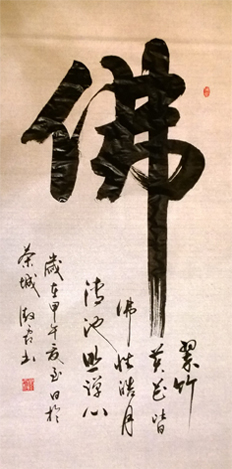 佛
翠竹
黄花皆
佛性皓月
清池照禅心
岁在甲午夏至日于
荣城
书